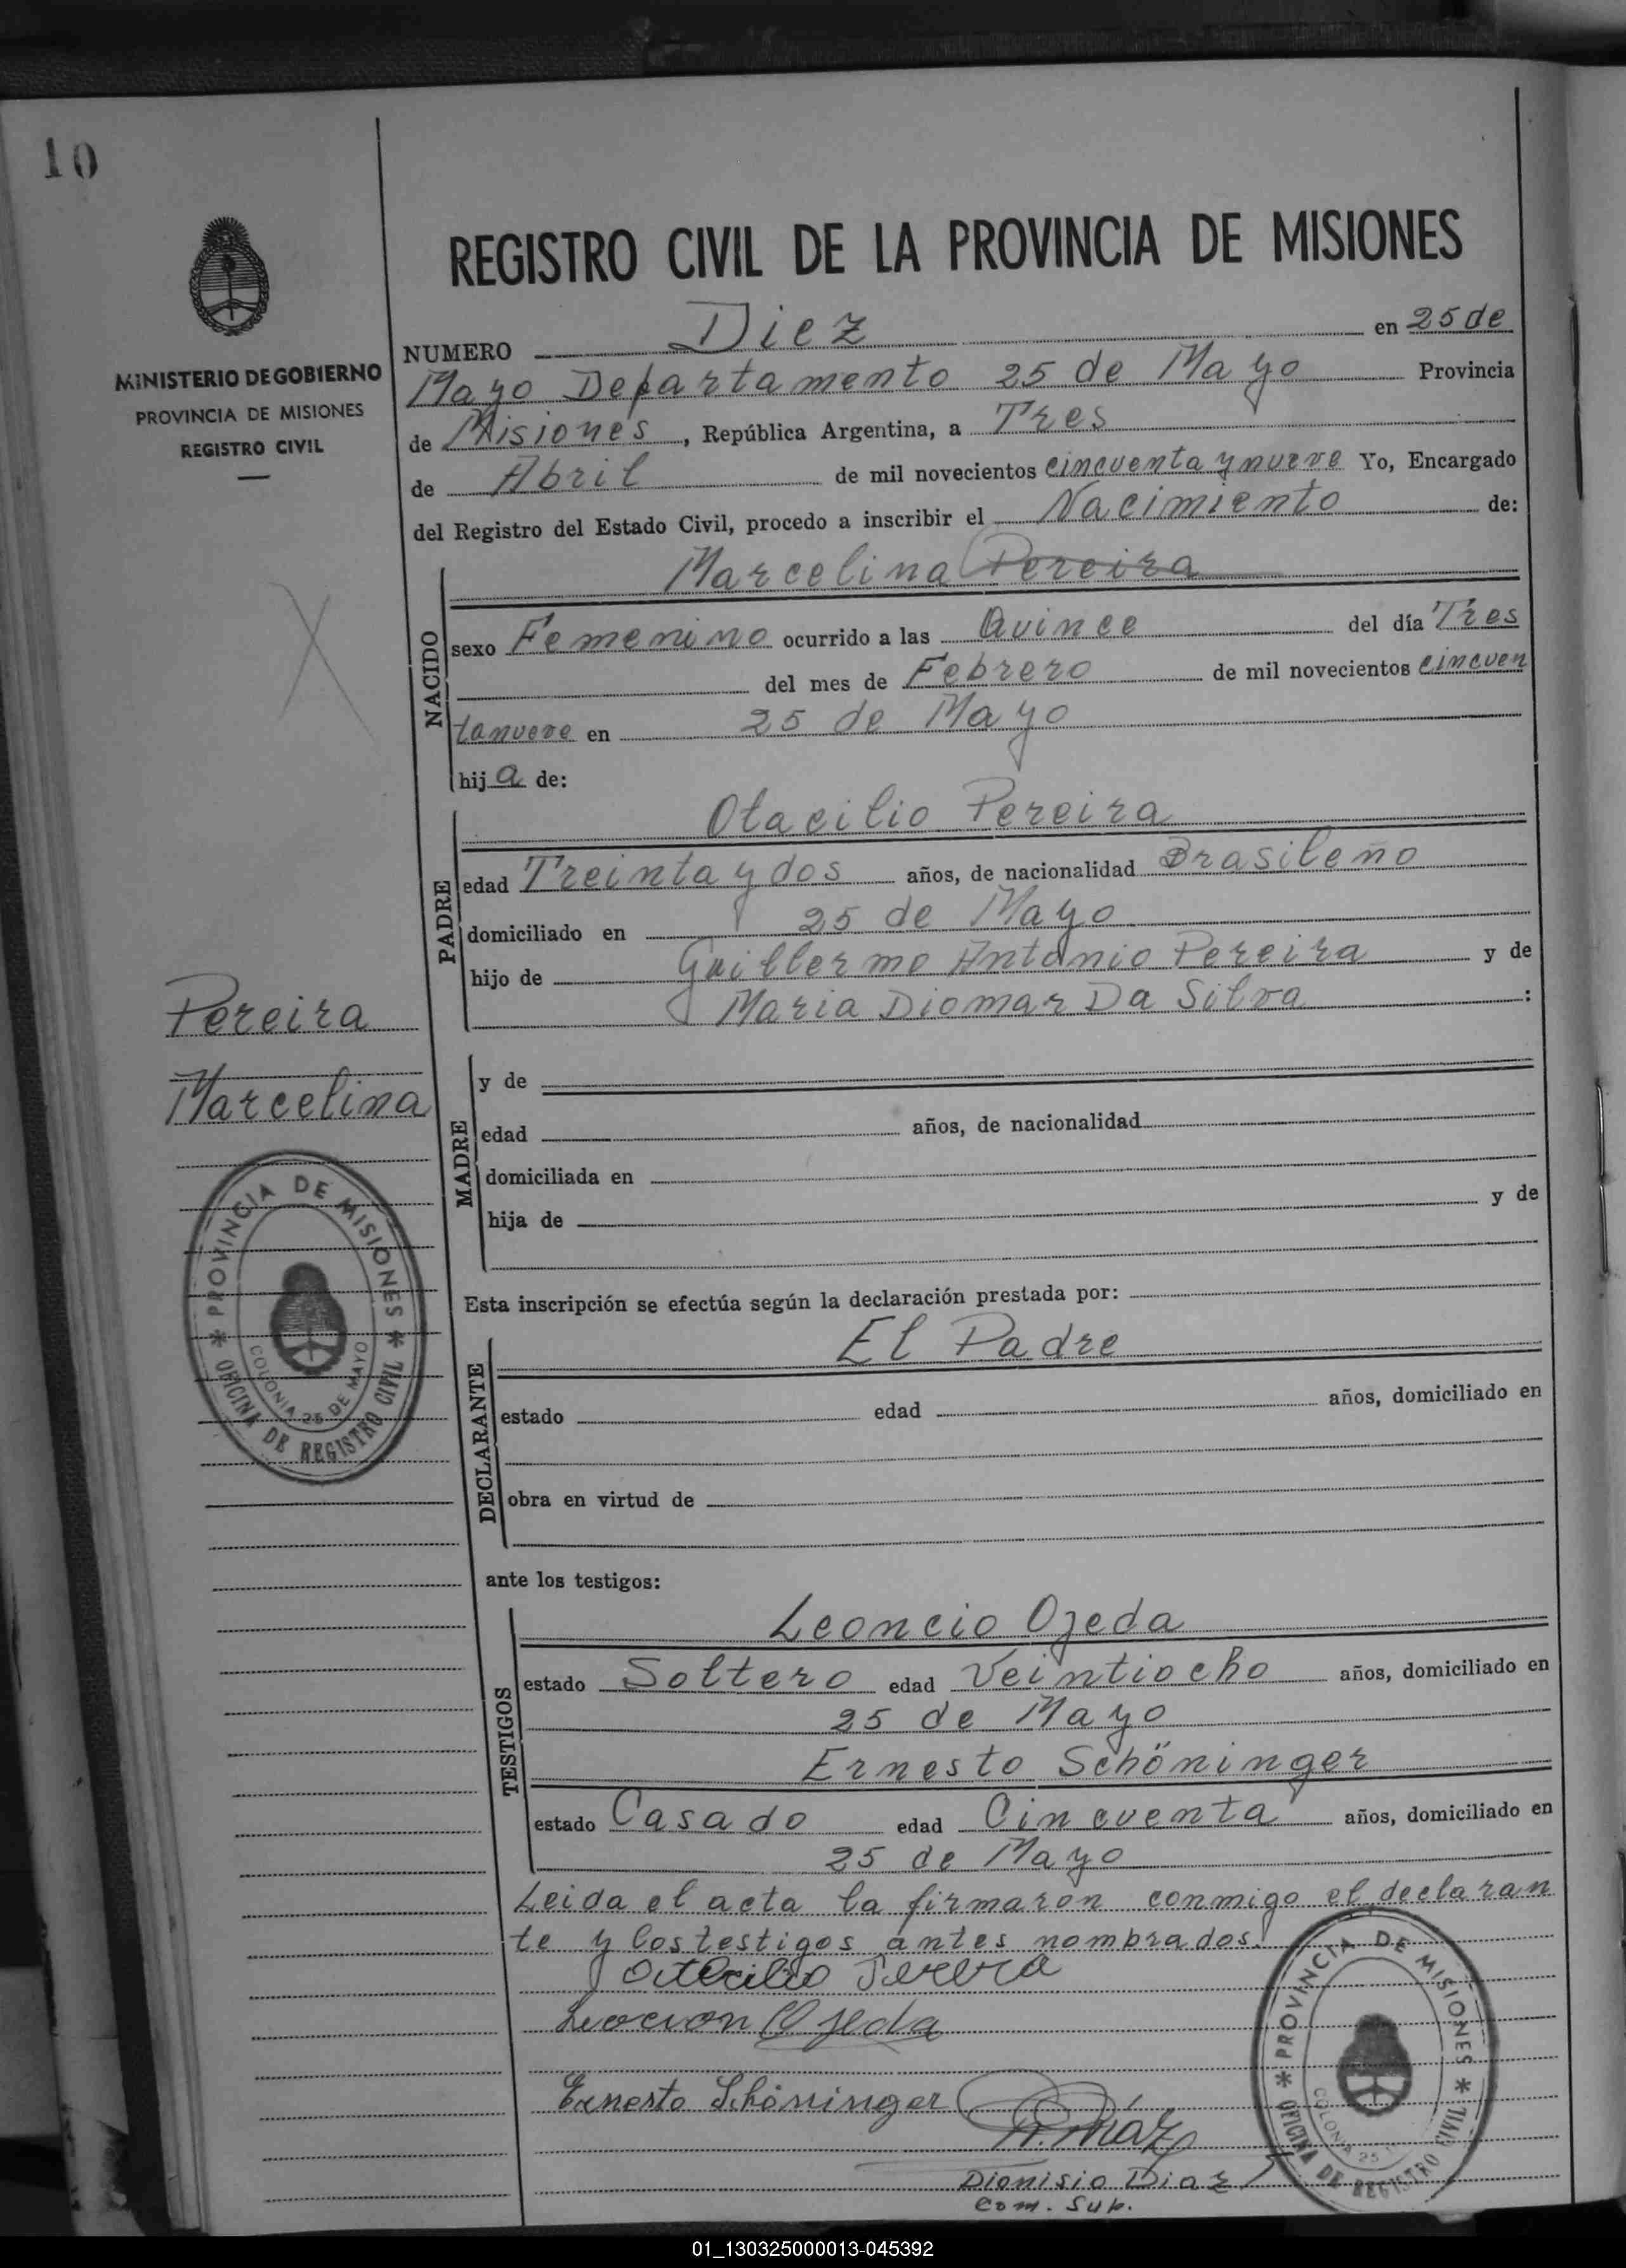 10
MINISTERIO DE GOBIERNO
PROVINCIA DE MISIONES
REGISTRO CIVIL
REGISTRO CIVIL DE LA PROVINCIA DE MISIONES
NUMERO Diez en 25 de
Mayo Departamento 25 de Mayo Provincia
de Misiones, República Argentina, a Tres
de Abril de mil novecientos cincuenta y nueve Yo, Encargado
del Registro del Estado Civil, procedo a inscribir el Nacimiento de:
Marcelina Pereira
NACIDO
sexo Femenino ocurrido a las Quince del día Tres
del mes de Febrero de mil novecientos cincuen
tanueve en 25 de Mayo
hija de:
PADRE
Otacilio Pereira
edad Treinta y dos años, de nacionalidad Brasileño
domiciliado en 25 de Mayo
hijo de Guillermo Antonio Pereira y de
Maria Diomar Da Silva :
Pereira
Marcelina
MADRE
y de
edad años, de nacionalidad
domiciliada en
hija de y de
PROVINCIA DE MISIONES
OFICINA DE REGISTRO CIVIL
COLONIA 25 DE MAYO
Esta inscripción se efectúa según la declaración prestada por:
DECLARANTE
El Padre
estado edad años, domiciliado en
obra en virtud de
ante los testigos:
TESTIGOS
Leoncio Ojeda
estado Soltero edad Veintiocho años, domiciliado en
25 de Mayo
Ernesto Schöninger
estado Casado edad Cincuenta años, domiciliado en
25 de Mayo
Leida el acta la firmaron conmigo el declaran
te y los testigos antes nombrados.
Ojeda
Ernesto Schöninger
Dionisio Diaz
Com. Sup.
PROVINCIA DE MISIONES
OFICINA DE REGISTRO CIVIL
COLONIA 25
01_130325000013-045392